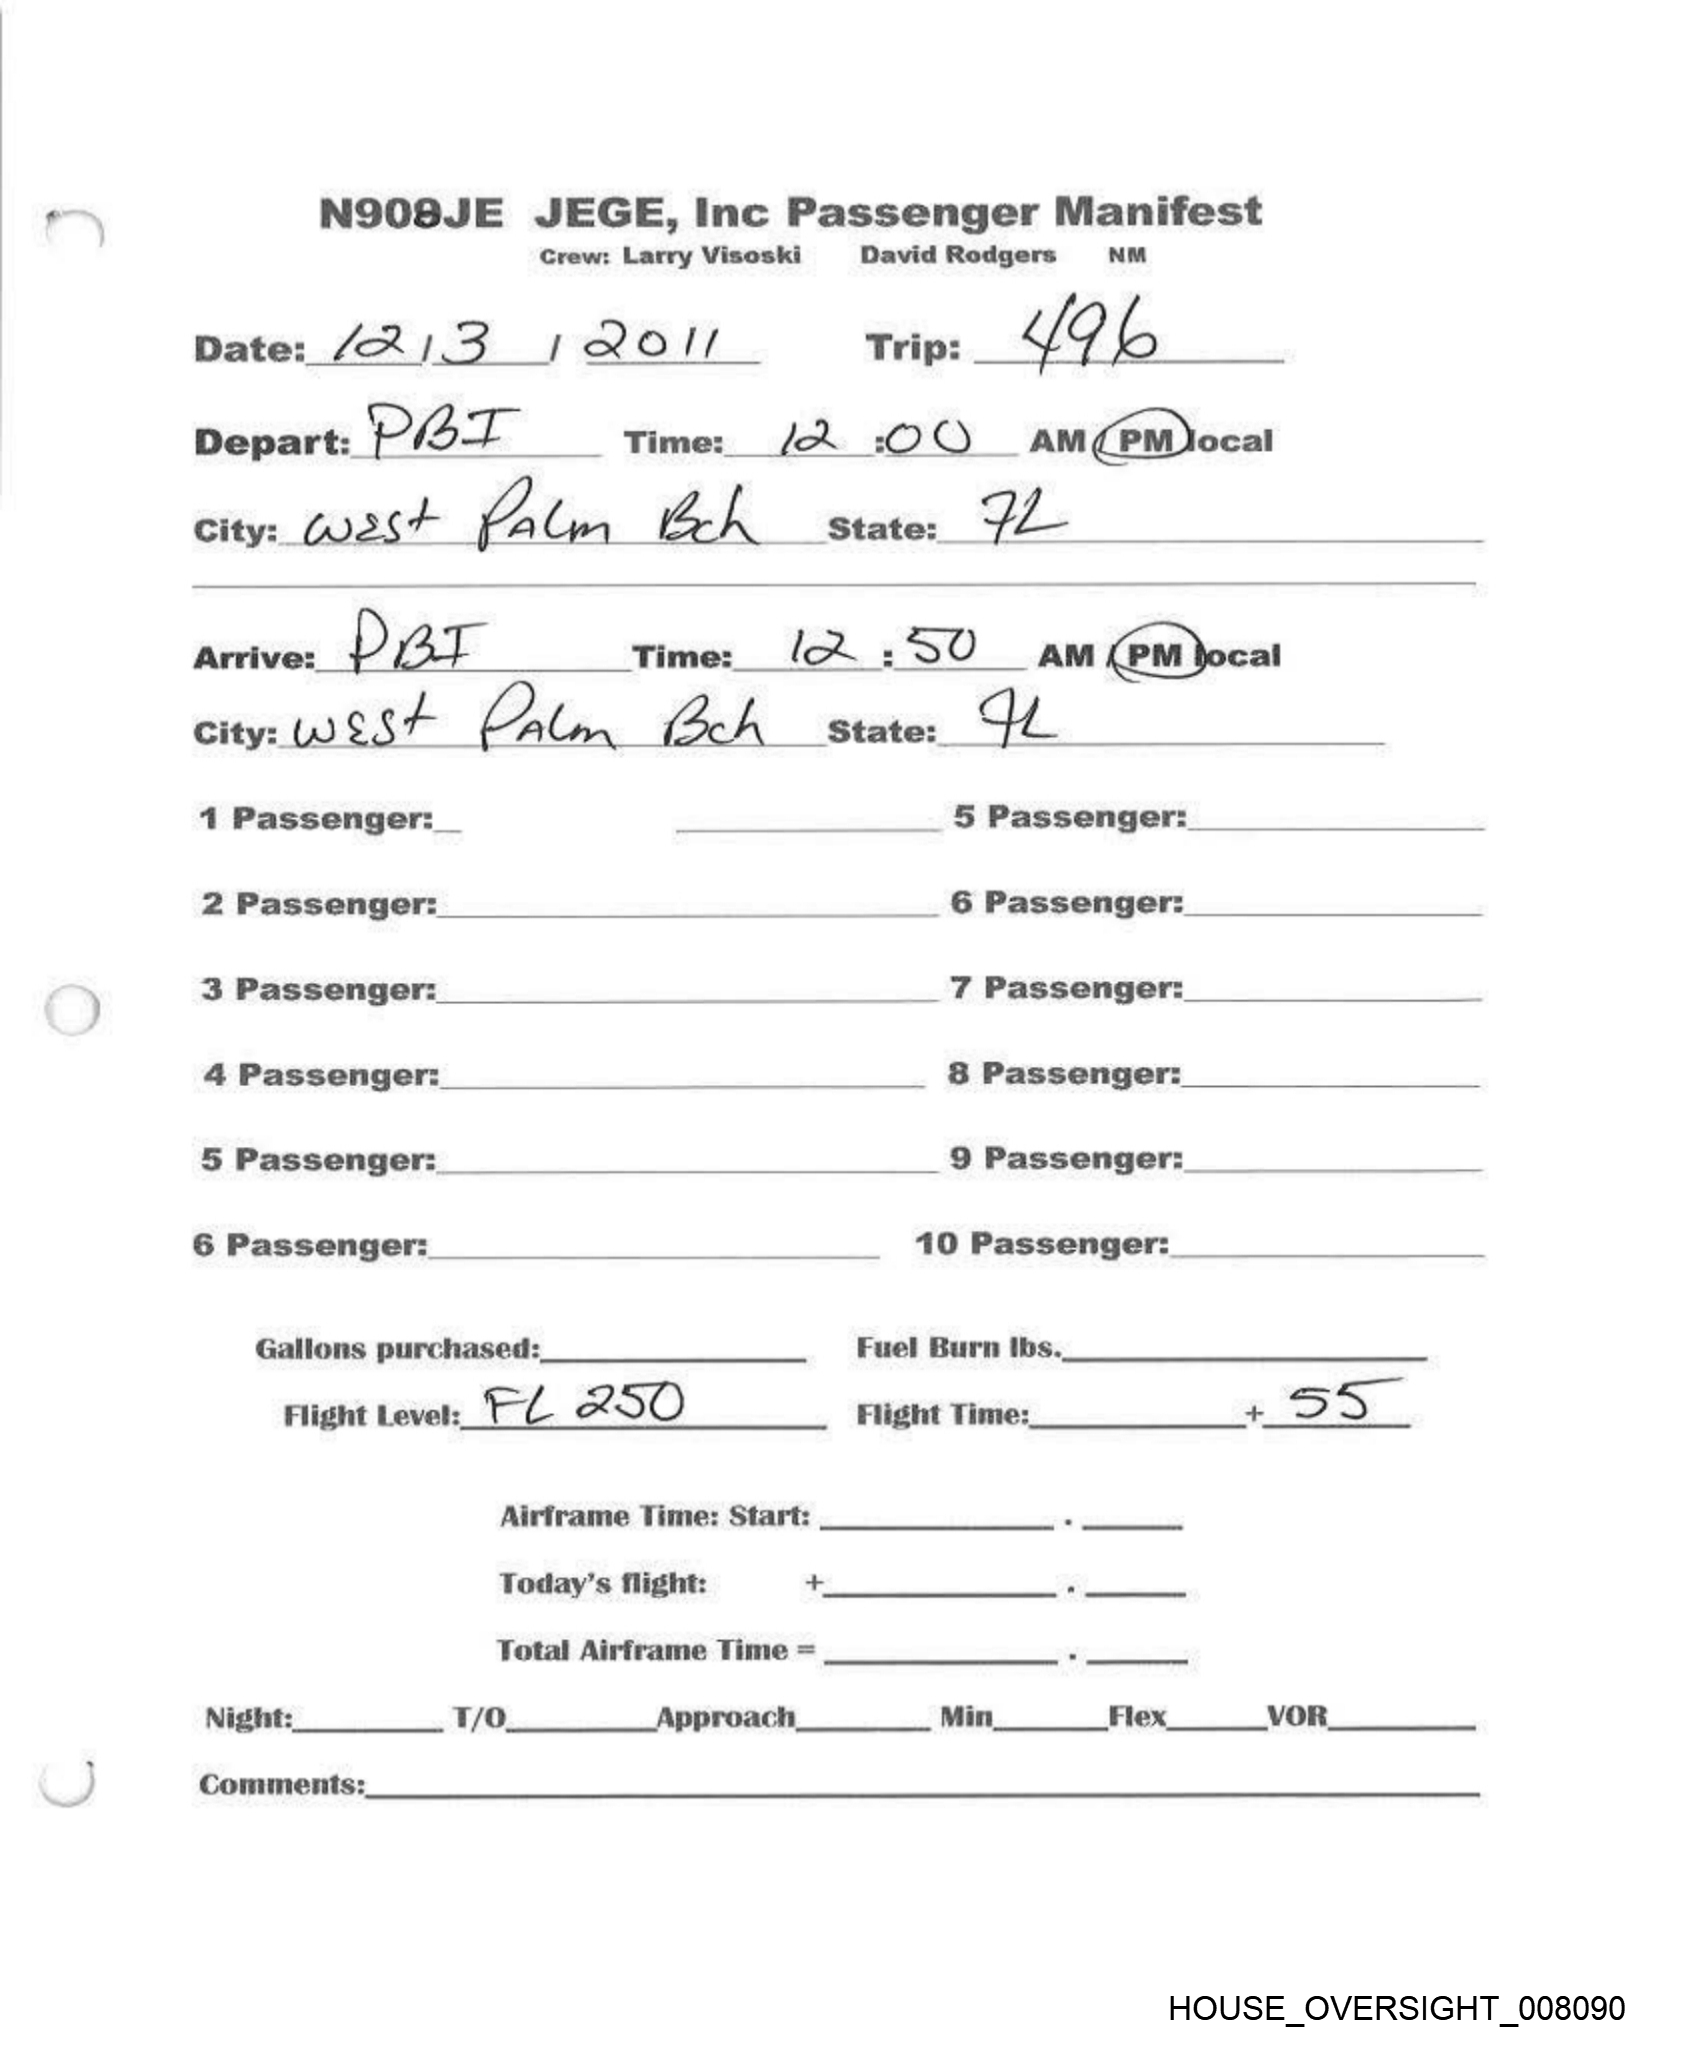 N908JE JEGE, Inc Passenger Manifest
Crew: Larry Visoski David Rodgers NM
Date: 12 / 3 / 2011 Trip: 496
Depart: PBI Time: 12 :00 AM / PM local
City: West Palm Bch State: FL
Arrive: PBI Time: 12 : 50 AM / PM local
City: West Palm Bch State: FL
1 Passenger: 5 Passenger:
2 Passenger: 6 Passenger:
3 Passenger: 7 Passenger:
4 Passenger: 8 Passenger:
5 Passenger: 9 Passenger:
6 Passenger: 10 Passenger:
Gallons purchased: Fuel Burn lbs.
Flight Level: FL 250 Flight Time: + 55
Airframe Time: Start: .
Today's flight: + .
Total Airframe Time = .
Night: T/O Approach Min Flex VOR
Comments:
HOUSE_OVERSIGHT_008090